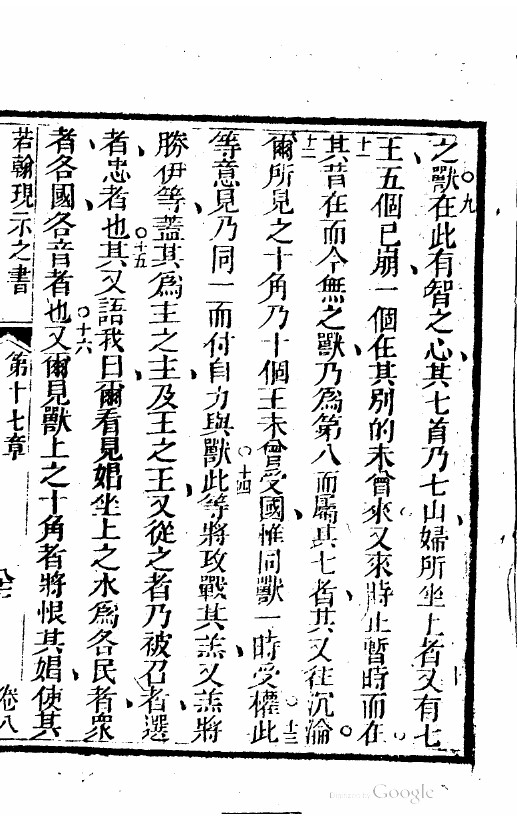 之獸○九在此有智之心其七首乃七山婦所坐上者又有七
王五個已崩一個在其別的未曾來又來時止暫時而在○
十一其昔在而今無之獸乃為第八而屬其七者其又往沉淪○
十二爾所見之十角乃十個王未曾受國惟同獸一時受權○十三此
等意見乃同一而付自力與獸○十四此等將攻戰其羔又羔將
勝伊等蓋其為主之主及王之王又從之者乃被召者選
者忠者也○十五其又語我曰爾看見娼坐上之水為各民者眾
者各國各音者也○十六又爾見獸上之十角者將恨其娼使其
若翰現示之書
第十七章
卷八
Google